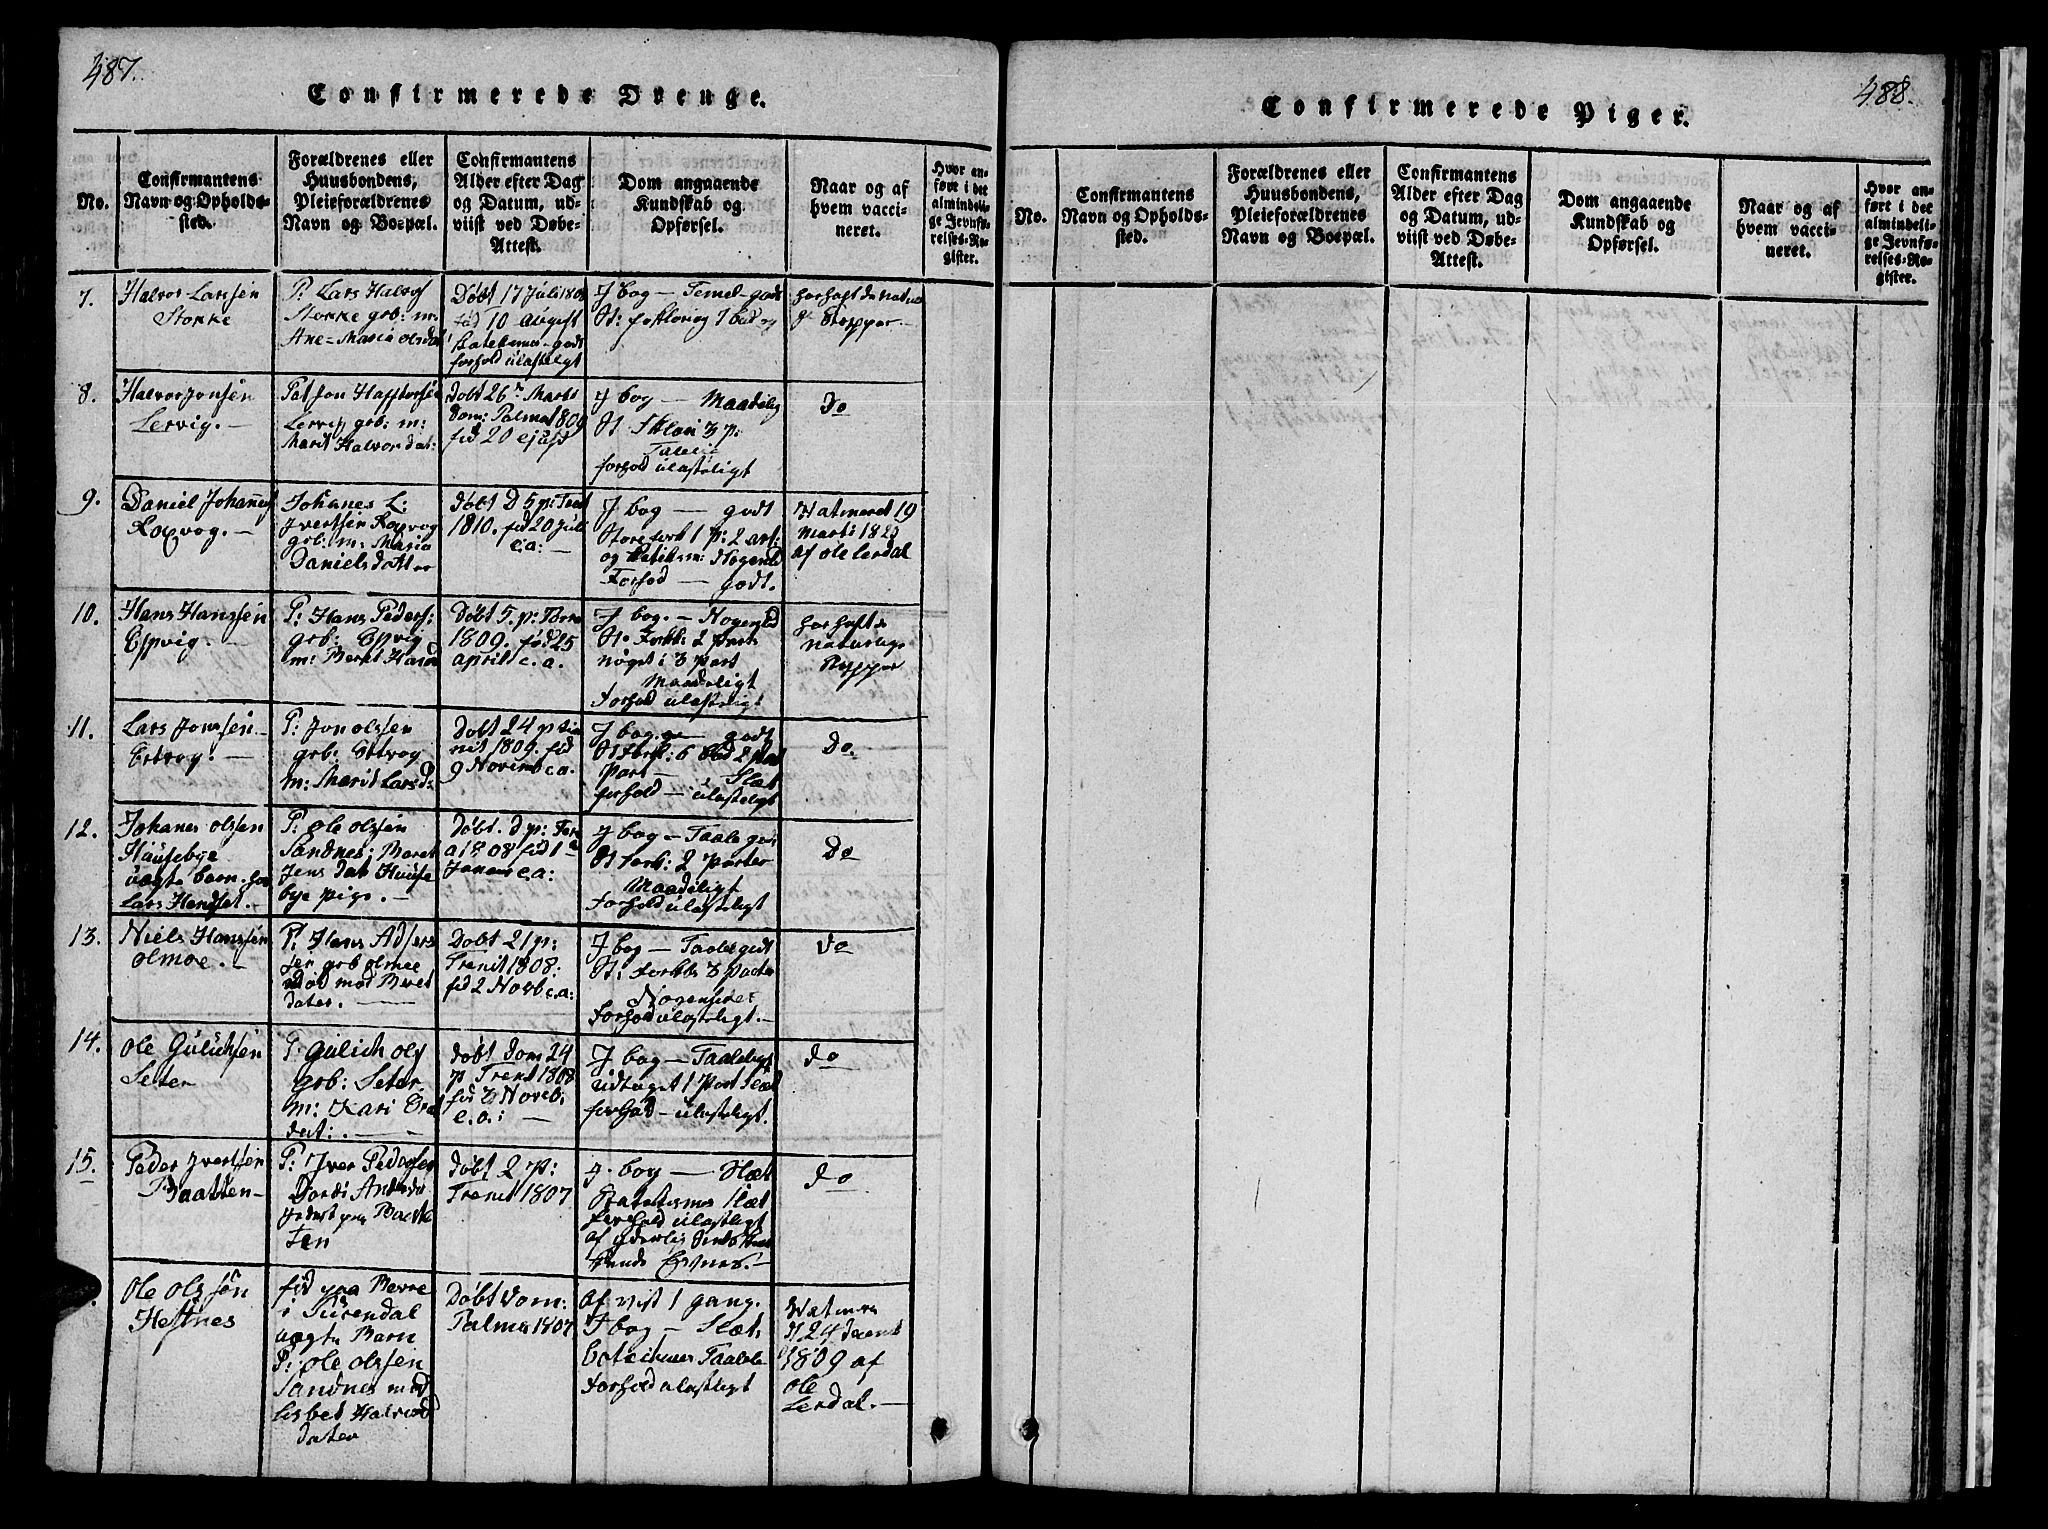 487.
Confirmerede Drenge.
No.
Confirmantens
Navn og Opholds-
sted.
Forældrenes eller
Huusbondens,
Pleieforældrenes
Navn og Boepæl.
Confirmantens
Alder efter Dag
og Datum, ud-
viist ved Døbe-
Attest.
Dom angaaende
Kundskab og
Opførsel.
Naar og af
hvem vacci-
neret.
Hvor an-
ført i det
almindeli-
ge Jevnfø-
relses-Re-
gister.
7.
Halvor Larssen
Stokke
P: Lars Halvors
Stokke grb: m:
Ane-Maria olsdat
Døbt 17 Juli
fød 10 august
forhold ulasteligt
J bog — Temel. godt
har haft de naturl
Kopper. —
8.
Halvor Jonsen
Lervig. —
Lervig grb: m:
Marit Halvordat:
Døbt 26 Marts
Dom: Palma 1809
fød 20 ejusd
J bog — Maadelig
forhold ulasteligt
Do
9.
Daniel Johannes
Roxvog. —
Johanes L:
Jvertsen Roxvog
grb: m: Maria
Daniels datter
Døbt D 5 p: Trin
1810. fød 20 Juli
c.a: —
J bog — godt
Store fork 1 p: 2 art:
Forhod — godt.
Vatineret 19
Marts 1820
af ole Lerdal
10.
Hans Hanssen
Espvig. —
P: Hans Peders:
grb: Espvig
m: Beret Hansd
Døbt 5. p: Trin
1809. fød 25
april c. a.
J bog. — Nogenled
St. Forkl: 2 part
nøget i 3 part
Maadeligt
Forhold ulasteligt
har haft de
naturlige
Kopper
11.
Lars Jonssen
Ertvog. —
P: Jon olssen
grb: Ertvog
m: Marit Larsd:
Døbt 24 p tri
nit 1809. fød
9 Novemb c.a.
J bog — godt
Part — Slet
forhold — ulasteligt
Do.
12.
Johanes olssen
Hausebye
Lars Hendset. —
P: ole olssen
Sandnes; Beret
Jens dat Huuse
bye pige. —
Døbt. D p: Trin
a 1808 fød 1
Januar c.a:
J bog — Taale godt
St fork: 2 Parter
Maadeligt
Forhold ulasteligt
Do
13.
Niels Hanssen
olmoe. —
P: Hans Anders
sen grb olmoe
dater. —
Døbt 21 p:
Trenit 1808:
fød 2 Novb c.a:
J bog — Taaleligt
St: Forkl: 3 Parter
Forhold ulasteligt. —
Do
14.
Ole Gulichsen
Seter
P: Gulich ols
grb: Seter.
m: Kari
dat:. —
Døbt Dom 24
p Trenit 1808
fød 3 Noveb,
c.a: —
J bog — Taaleligt
udtoget 1 Part Slæt
forhold — ulasteligt.
Do
15.
Peder Jvertsen
Baatten —
P: Jver Pedersen
Døbt 2 p:
Trenit 1807
J. bog — Slæt
Katekismes Slæt
forhold ulastligt
Do
Ole Olssøn
Heftnes
fød paa Berre
i Surendal
uægte Barn
P: ole olssen
Sandnes med
Lisbet Halvord
dater
Døbt Dom:
Palma 1807
Af vist 1 gang.
J bog — Slæt.
Forhold ulastligt
1809 af
ole
Lerdal. —
488.
Confirmerede Piger.
No.
Confirmantens
Navn og Opholds-
sted.
Forældrenes eller
Huusbondens,
Pleieforældrenes
Navn og Boepæl.
Confirmantens
Alder efter Dag
og Datum, ud-
viist ved Døbe-
Attest.
Dom angaaende
Kundskab og
Opførsel.
Naar og af
hvem vacci-
neret.
Hvor an-
ført i det
almindeli-
ge Jevnfø-
relses-Re-
gister.